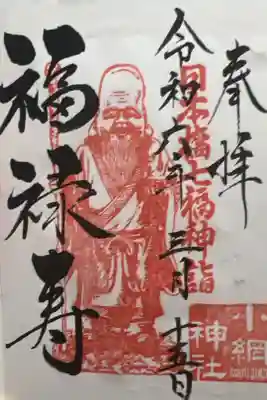 奉拝
日本橋七福神詣
令和六年三月十五日
福禄寿
小網神社